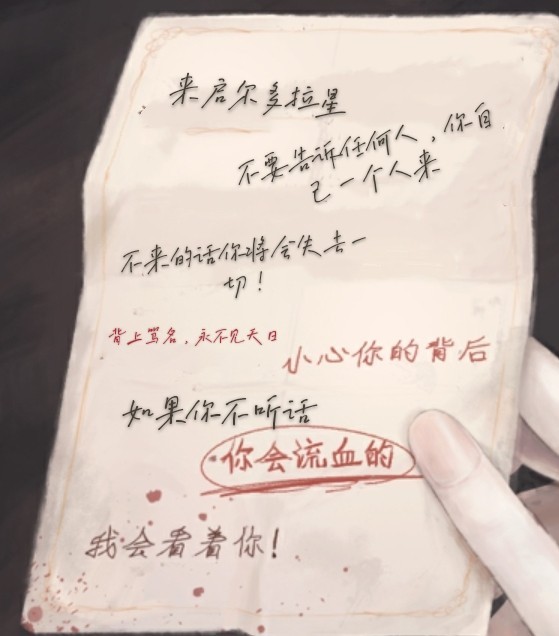 来启尔多拉星
不要告诉任何人，你自
己一个人来
不来的话你将会失去一
切！
背上骂名，永不见天日
小心你的背后
如果你不听话
你会流血的
我会看着你！